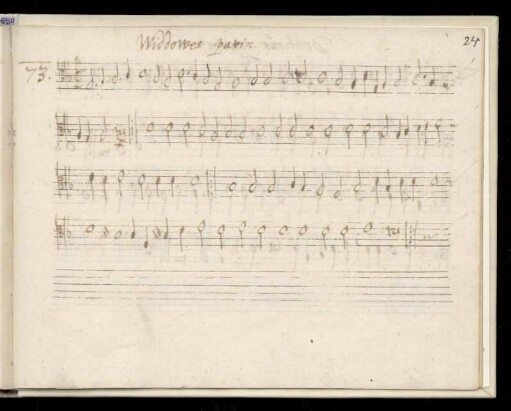 Widdowes pavin
24
73.